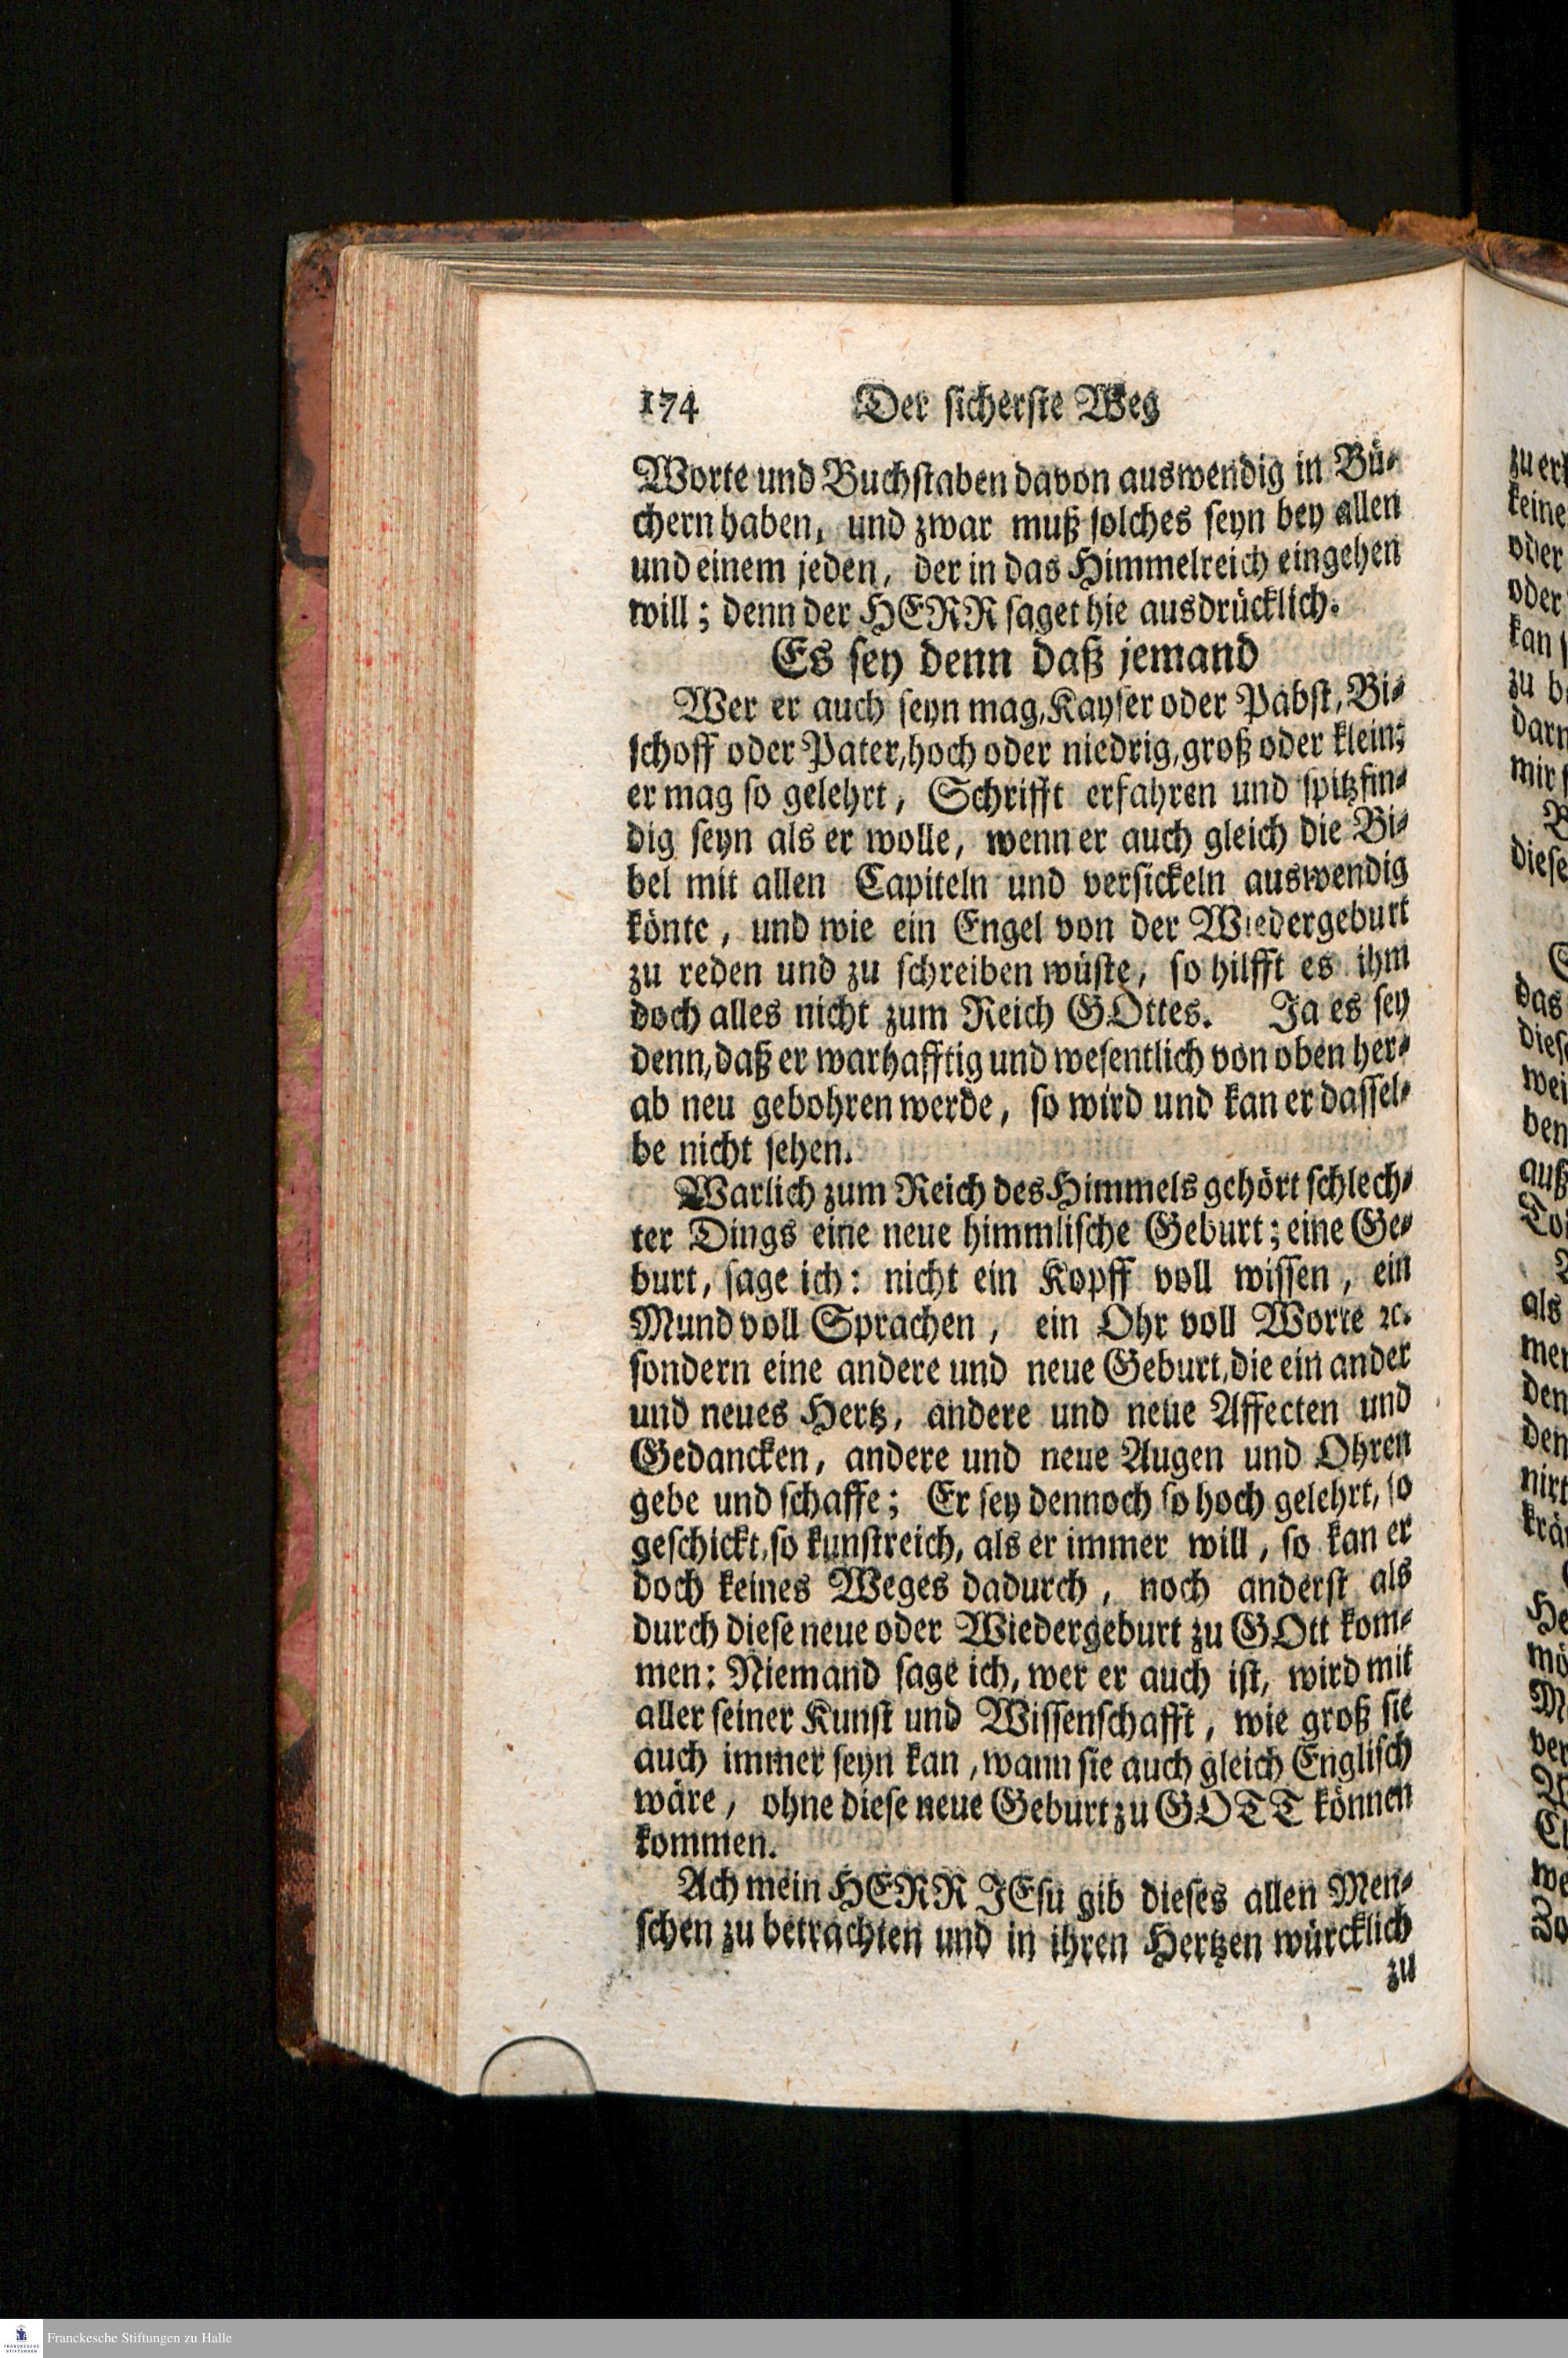 174 Der sicherste Weg
Worte und Buchstaben davon auswendig in Bü-
chern haben, und zwar muß solches seyn bey allen
und einem jeden, der in das Himmelreich eingehen
will; denn der HERR saget hie ausdrücklich.
Es sey denn daß jemand
Wer er auch seyn mag, Kayser oder Pabst, Bi-
schoff oder Pater, hoch oder niedrig, groß oder klein;
er mag so gelehrt, Schrifft erfahren und spitzfin-
dig seyn als er wolle, wenn er auch gleich die Bi-
bel mit allen Capiteln und versickeln auswendig
könte, und wie ein Engel von der Wiedergeburt
zu reden und zu schreiben wüste, so hilfft es ihm
doch alles nicht zum Reich GOttes. Ja es sey
denn, daß er warhafftig und wesentlich von oben her-
ab neu gebohren werde, so wird und kan er dassel-
be nicht sehen.
Warlich zum Reich des Himmels gehört schlech-
ter Dings eine neue himmlische Geburt; eine Ge-
burt, sage ich: nicht ein Kopff voll wissen, ein
Mund voll Sprachen, ein Ohr voll Worte ꝛc.
sondern eine andere und neue Geburt, die ein ander
und neues Hertz, andere und neue Affecten und
Gedancken, andere und neue Augen und Ohren
gebe und schaffe; Er sey dennoch so hoch gelehrt, so
geschickt, so kunstreich, als er immer will, so kan er
doch keines Weges dadurch, noch anderst als
durch diese neue oder Wiedergeburt zu GOtt kom-
men: Niemand sage ich, wer er auch ist, wird mit
aller seiner Kunst und Wissenschafft, wie groß sie
auch immer seyn kan, wann sie auch gleich Englisch
wäre, ohne diese neue Geburt zu GOTT können
kommen.
Ach mein HERR JEsu gib dieses allen Men-
schen zu betrachten und in ihren Hertzen würcklich
zu
Franckesche Stiftungen zu Halle